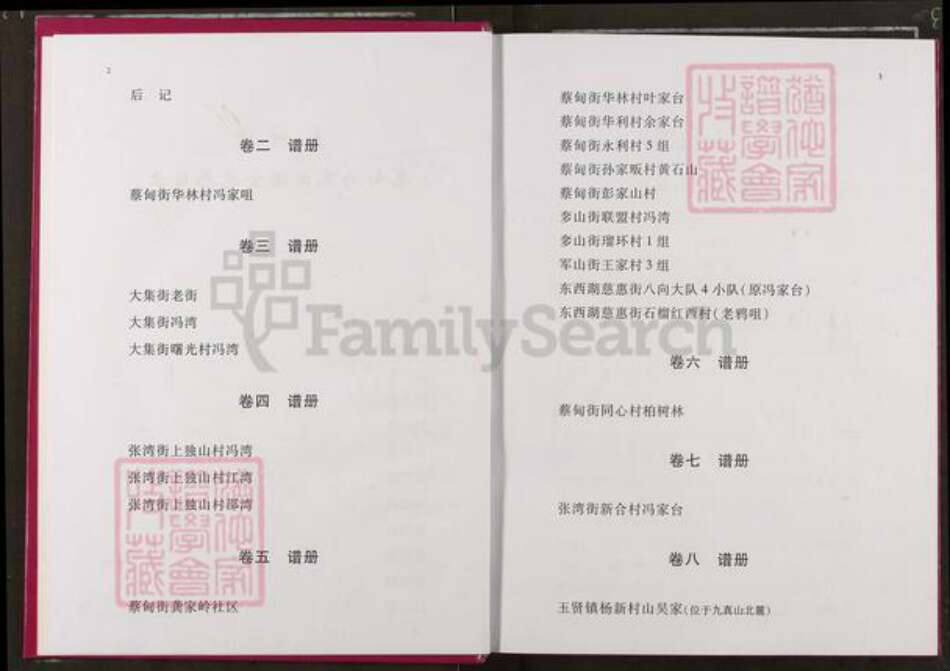 2
后 记
卷二 谱册
蔡甸街华林村冯家咀
卷三 谱册
大集街老街
大集街冯湾
大集街曙光村冯湾
卷四 谱册
张湾街上独山村冯湾
张湾街上独山村江湾
张湾街上独山村邵湾
卷五 谱册
蔡甸街龚家岭社区
3
蔡甸街华林村叶家台
蔡甸街华利村余家台
蔡甸街永利村5组
蔡甸街孙家畈村黄石山
蔡甸街彭家山村
奓山街联盟村冯湾
奓山街瑠环村1组
军山街王家村3组
东西湖慈惠街八向大队4小队(原冯家台)
东西湖慈惠街石榴红西村(老鸦咀)
卷六 谱册
蔡甸街同心村柏树林
卷七 谱册
张湾街新合村冯家台
卷八 谱册
玉贤镇杨新村山吴家(位于九真山北麓)
FamilySearch